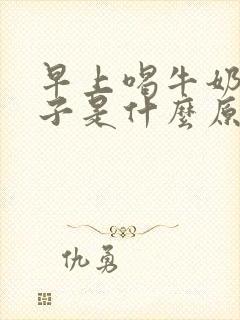 早上喝牛奶
子是什麼原
仇勇